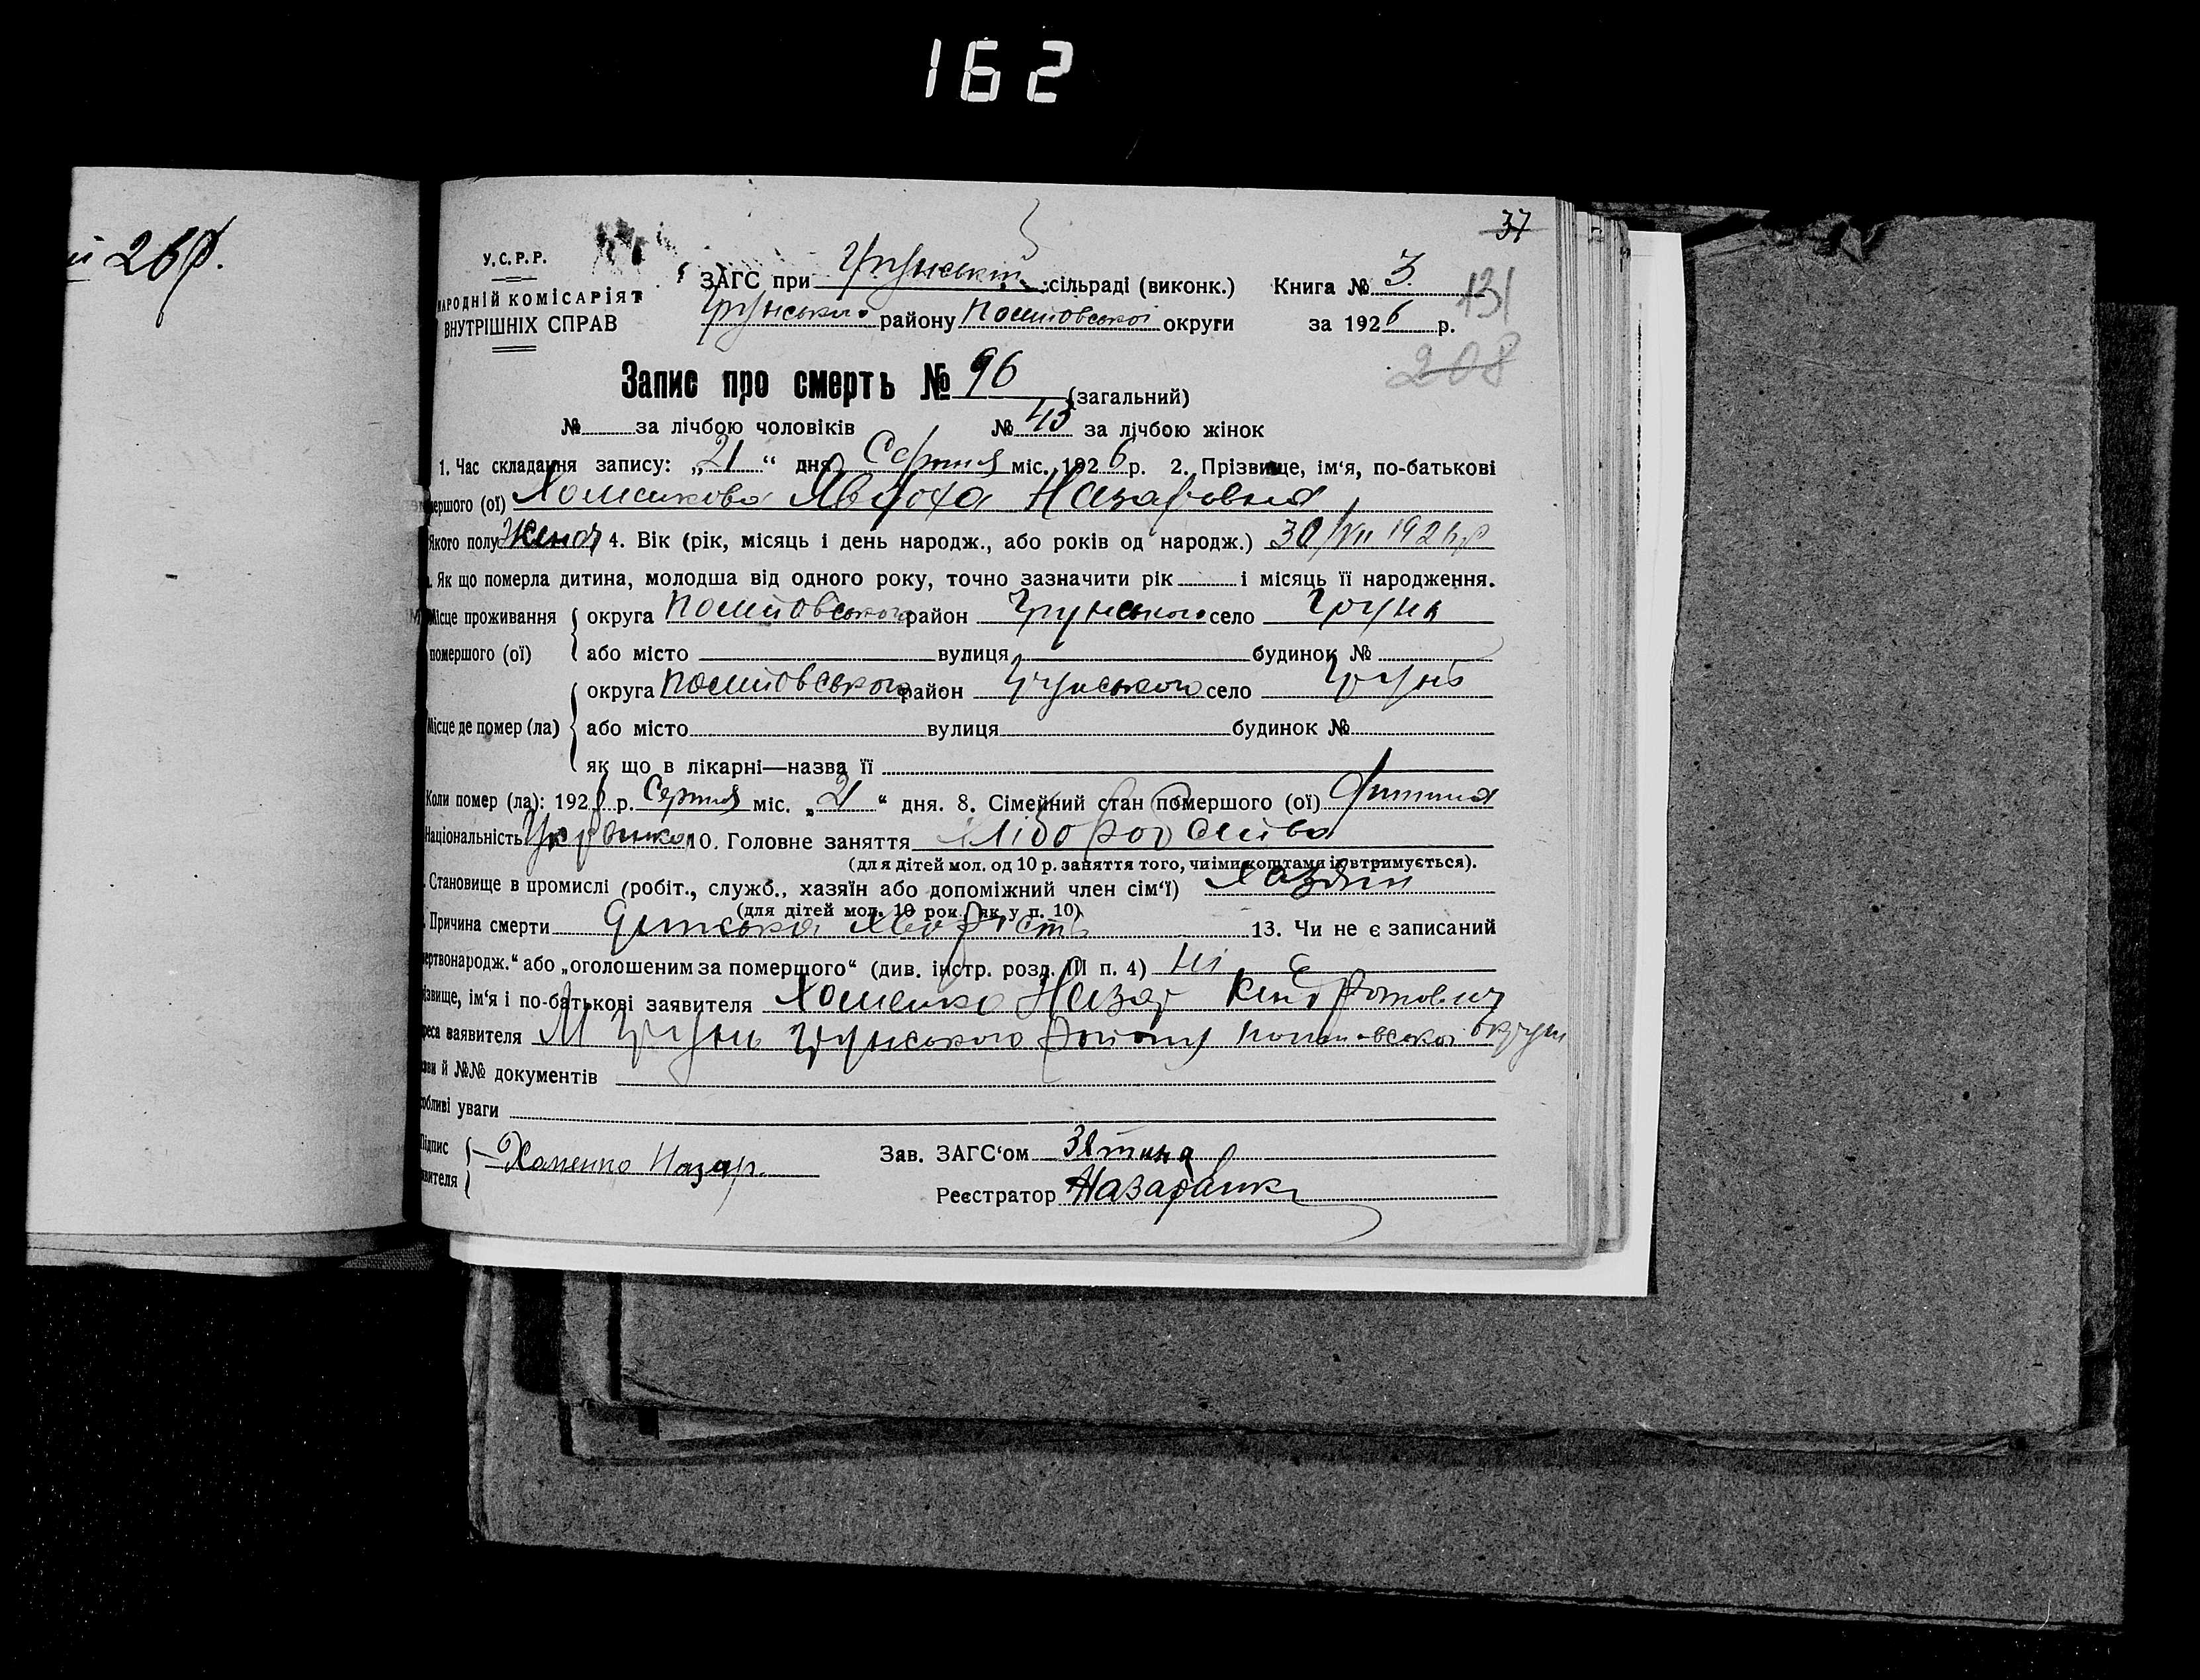 162
й 26 р.
37
У.С.Р.Р.
НАРОДНІЙ КОМІСАРІЯТ
ВНУТРІШНІХ СПРАВ
ЗАГС при Грунській сільраді (виконк.) Книга № 3
131
Грунського району Полтовської округи за 1926 р.
208
Запис про смерть № 96 (загальний)
№ за лічбою чоловіків № 43 за лічбою жінок
1. Час складання запису: „21“ дня Серпня міс. 1926 р. 2. Прізвище, ім‘я, по-батькові
мершого (ої) Хоменкова Явдоха Назаровна
Якого полу Жіноч 4. Вік (рік, місяць і день народж., або років од народж.) 30/VII 1926 р
Як що померла дитина, молодша від одного року, точно зазначити рік і місяць її народження.
Місце проживання округа Полтовського район Грунського село Грунь
помершого (ої) або місто вулиця будинок №
округа Полтовського район Грунського село Грунь
Місце де помер (ла) або місто вулиця будинок №
як що в лікарні—назва її
Коли помер (ла): 1926 р. Серпня міс. „21“ дня. 8. Сімейний стан помершого (ої) Дитина
Національність Українка 10. Головне заняття хліборобство
(для дітей мол. од 10 р. заняття того, чиїми коштами їх втримується).
Становище в промислі (робіт., служб., хазяїн або допоміжний член сім‘ї) Хазяїн
(для дітей мол. 10 рок. як у п. 10)
Причина смерти Дитська хворість 13. Чи не є записаний
мертвонародж.“ або „оголошеним за помершого“ (див. інстр. розд. III п. 4) Ні є
ізвище, ім‘я і по-батькові заявителя Хоменко Назар Кіндратович
реса заявителя М Грунь Грунського району Полтовської округи
зви й №№ документів
собливі уваги
Підпис Хоменко Назар. Зав. ЗАГС‘ом
явителя Реєстратор Назаренко